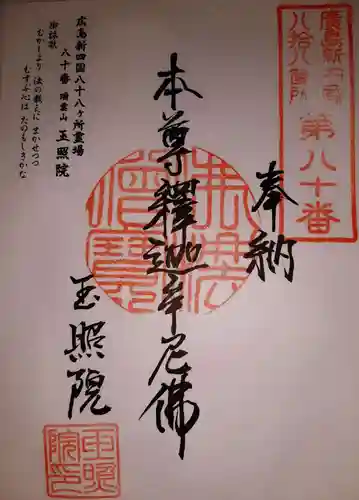 廣島新四國
八拾八箇所
第八十番
奉納
本尊釋迦牟尼佛
玉照院
佛法僧寶
玉照院印
広島新四国八十八ヶ所霊場
八十番 晴雲山 玉照院
御詠歌
むかしより 法の教えに まかせつつ
むすぶ心は たのもしきかな